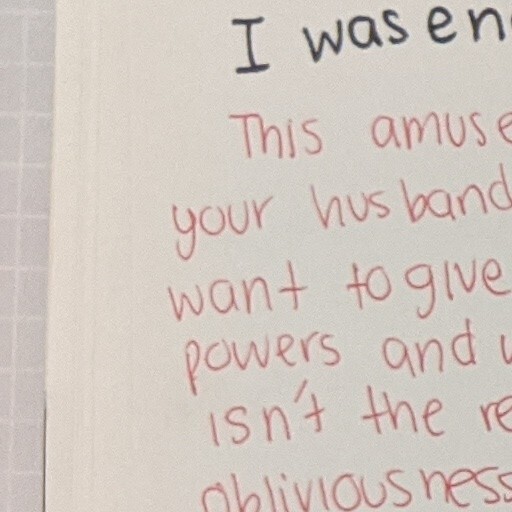 I was en
This amuse
your husband
want to give
powers and
isn't the re
obliviousness